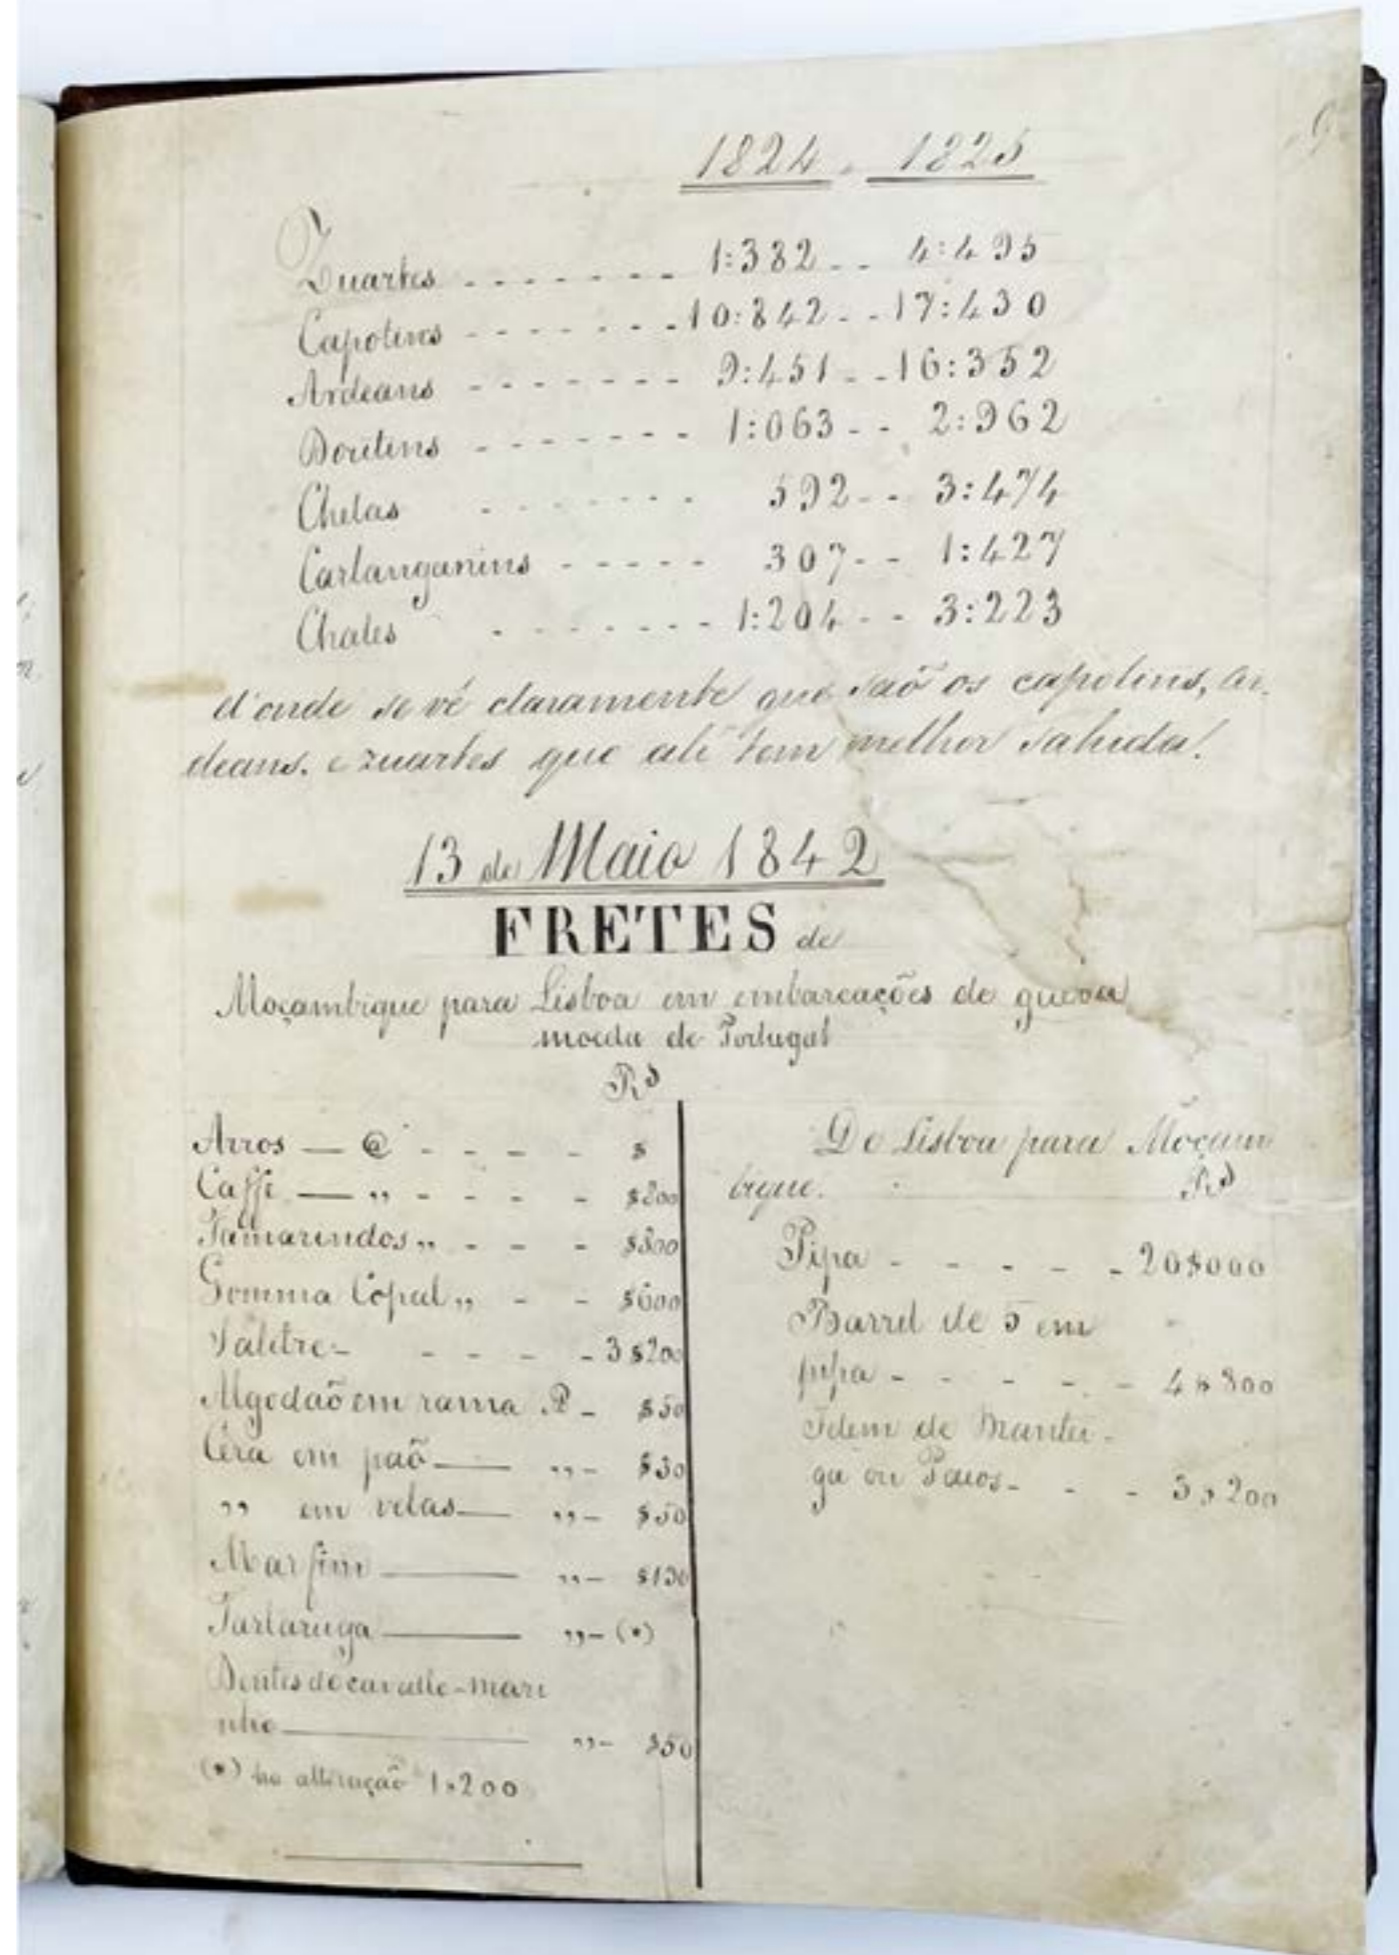 1824 - 1825
Zuartes - - - - - - - 1:382 - - 4:495
Capotins - - - - - - - 10:842 - - 17:430
Ardeans - - - - - - - 9:451 - - 16:352
Doutins - - - - - - - 1:063 - - 2:962
Chelas - - - - - - - 592 - - 3:474
Carlanganins - - - - - 307 - - 1:427
Chales - - - - - - - 1:204 - - 3:223
d'onde se vê claramente que saõ os capotins, ar-
deans. e zuartes que ali tem melhor sahida!
13 de Maio 1842
FRETES de
Moçambique para Lisboa em embarcações de guerra
moeda de Portugal
Rs
Arros — @ - - - - $
Caffe — „ - - - - $800
Tamarindos „ - - - $800
Gomma Copal „ - - $600
Salitre - - - - - - 3$200
Algodaõ em rama .R - $50
Cera em paõ — „ - $30
„ em velas — „ - $50
Marfim — „ - $130
Tartaruga — „ - (*)
Dentes de cavallo-mari
nho — „ - $50
(*) ha alteraçaõ 1$200
De Lisboa para Moçam
bique. Rs
Pipa - - - - - 20$000
Barril de 5 em
pipa - - - - - 4$800
Idem de Mantei-
ga ou Paios - - - 3$200